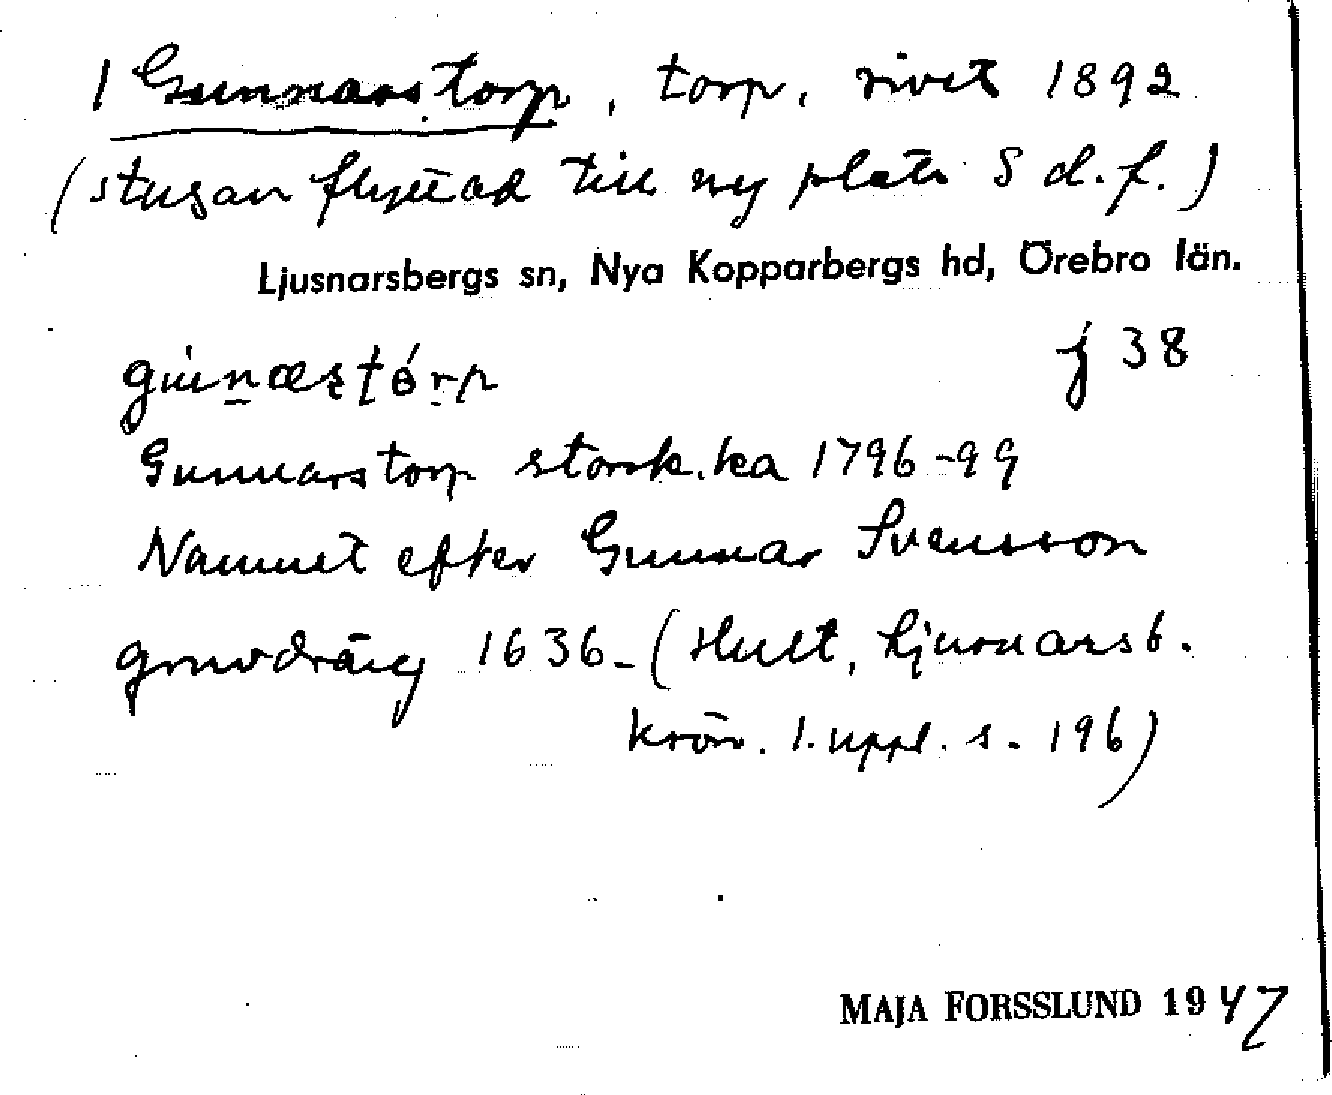 1 Gunnarstorp, torp, rivet 1892
(stugan flyttad till ny plats S d.f.)
Ljusnarsbergs sn, Nya Kopparbergs hd, Örebro län.
j 38
Gunnarstorp storsk.ka 1796-99
Namnet efter Gunnar Svensson
gruvdräng 1636_ (Hult, Ljusnarsb.
krön. 1. uppl. s. 196)
MAJA FORSSLUND 1947